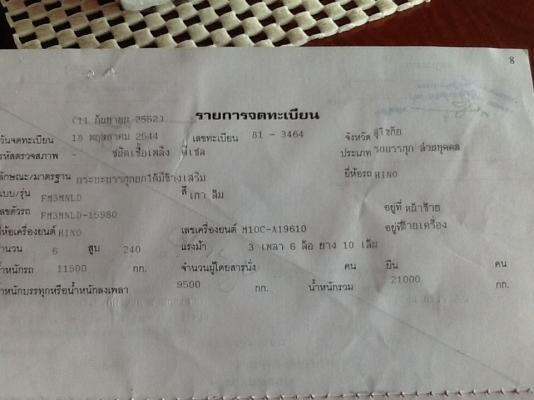 8
(14 กันยายน 2552) รายการจดทะเบียน
วันจดทะเบียน 18 พฤษภาคม 2544 เลขทะเบียน 81 - 3464 จังหวัด สุโขทัย
รหัสตรวจสภาพ - ชนิดเชื้อเพลิง ดีเซล ประเภท รถบรรทุก ส่วนบุคคล
ลักษณะ/มาตรฐาน กระบะบรรทุกยกได้มีข้างเสริม ยี่ห้อรถ HINO
แบบ/รุ่น FM3MNLD สี เทา ส้ม
เลขตัวรถ FM3MNLD-15980 อยู่ที่ หน้าซ้าย
ยี่ห้อเครื่องยนต์ HINO เลขเครื่องยนต์ M10C-A19610 อยู่ที่ซ้ายเครื่อง
จำนวน 6 สูบ 240 แรงม้า 3 เพลา 6 ล้อ ยาง 10 เส้น
น้ำหนักรถ 11500 กก. จำนวนผู้โดยสารนั่ง คน ยืน คน
น้ำหนักบรรทุกหรือน้ำหนักลงเพลา 9500 กก. น้ำหนักรวม 21000 กก.